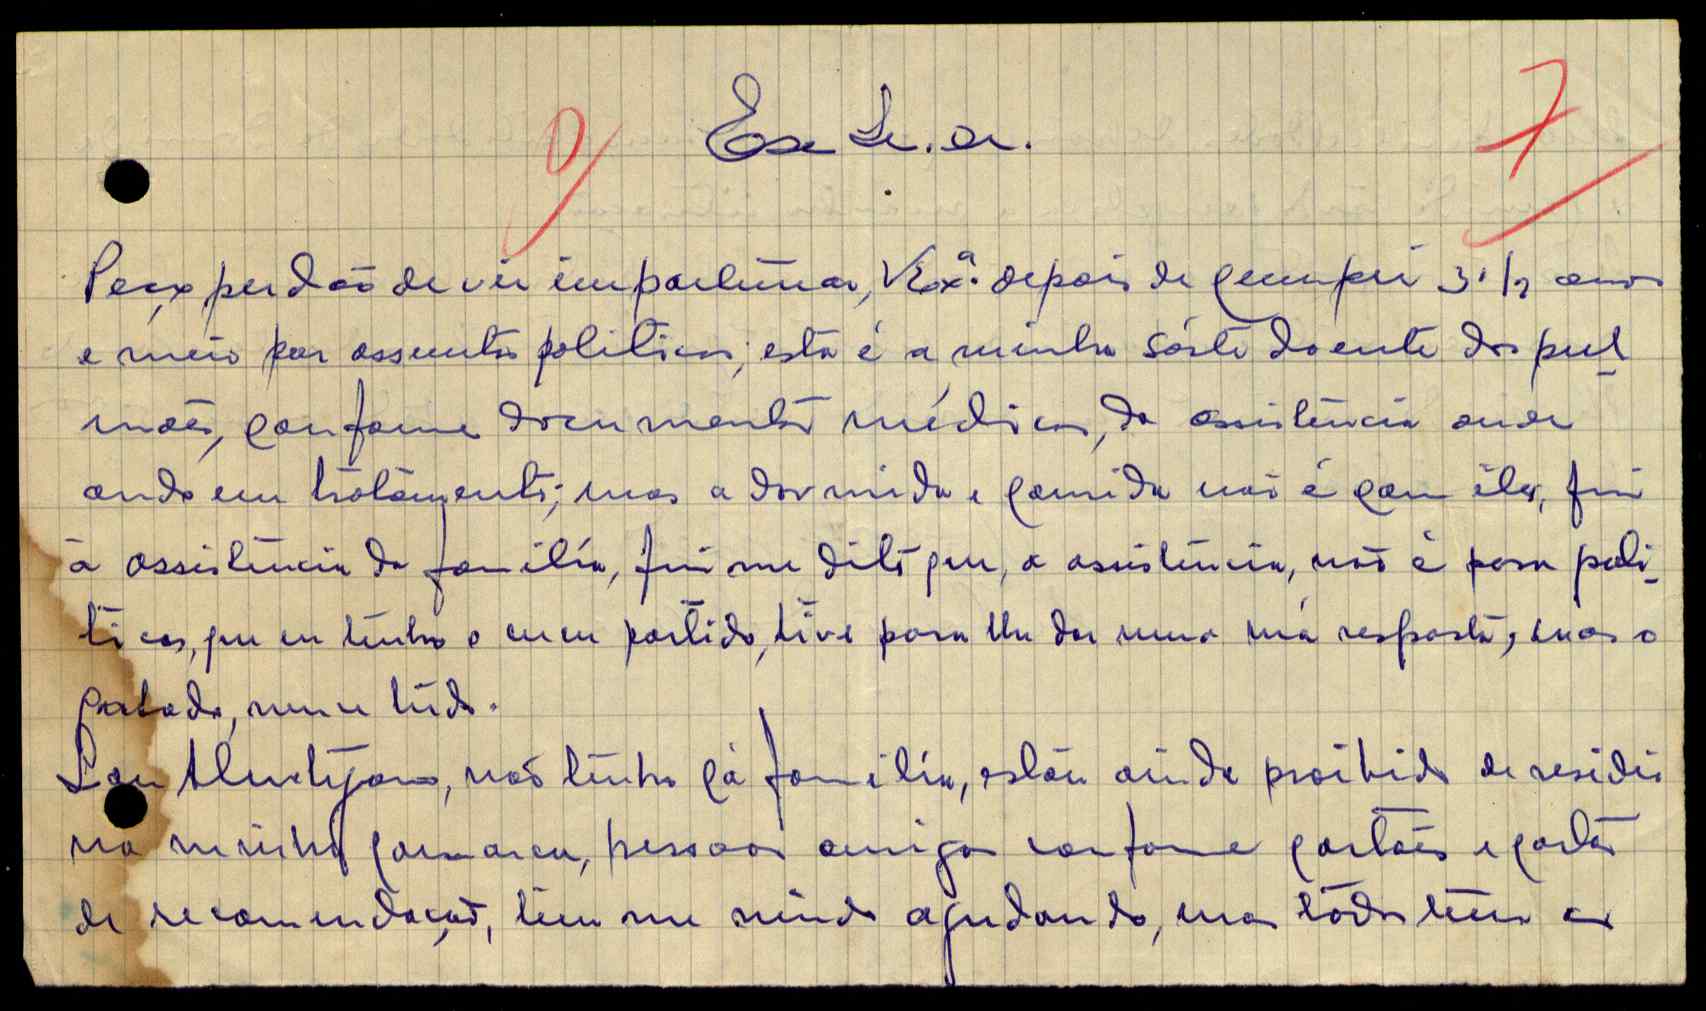 7
Exe Sr. Dr.
Peço perdão de vir importunar, V.Exª. depois de cumprir 3 1/2 anos
e meio por assuntos politicos; esta é a minha sórte doente dos pul-
mões, conforme documentos médicos, da assistência onde
ando em tratamento; mas a dormida e comida não é com êles, fui
á assistência da familia, foi me dito que, a assistência, não é para poli-
ticos, que eu tenho o meu partido, tive para lhe dar uma má resposta, mas o
calado, vence tudo.
Sou Alentejano, não tenho cá familia, estou ainda proibido de residir
na minha comarca, pessoas amigas conforme cartões e cartas
de recomendação, tem me vindo ajudando, mas todos têm as